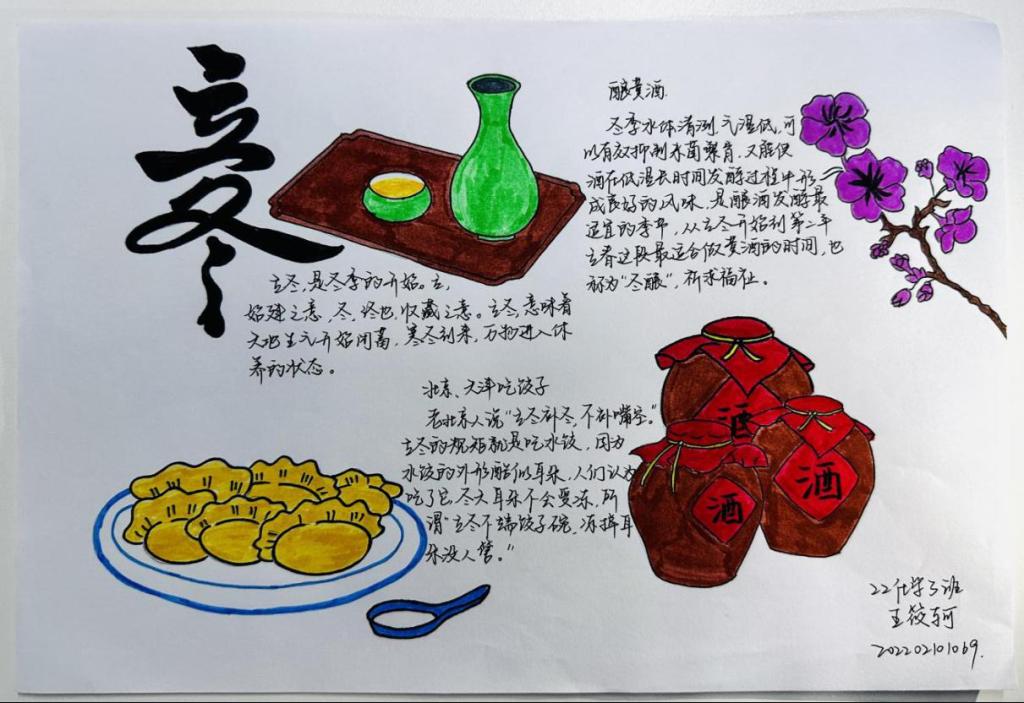 立冬
立冬,是冬季的开始。立,
始建之意,冬,终也,收藏之意。立冬,意味着
天地生气开始闭蓄,寒冬到来,万物进入休
养的状态。
酿黄酒
冬季水体清冽、气温低,可
以有效抑制杂菌繁育,又能使
酒在低温长时间发酵过程中形
成良好的风味,是酿酒发酵最
适宜的季节,从立冬开始到第二年
立春这段最适合做黄酒的时间,也
称为"冬酿",祈求福祉。
北京、天津吃饺子
老北京人说"立冬补冬,不补嘴空。"
立冬的规矩就是吃水饺,因为
水饺的外形酷似耳朵,人们认为
吃了它,冬天耳朵不会受冻,所
谓"立冬不端饺子碗,冻掉耳
朵没人管。"
酒
酒
酒
22化学3班
王筱珂
202202101069.